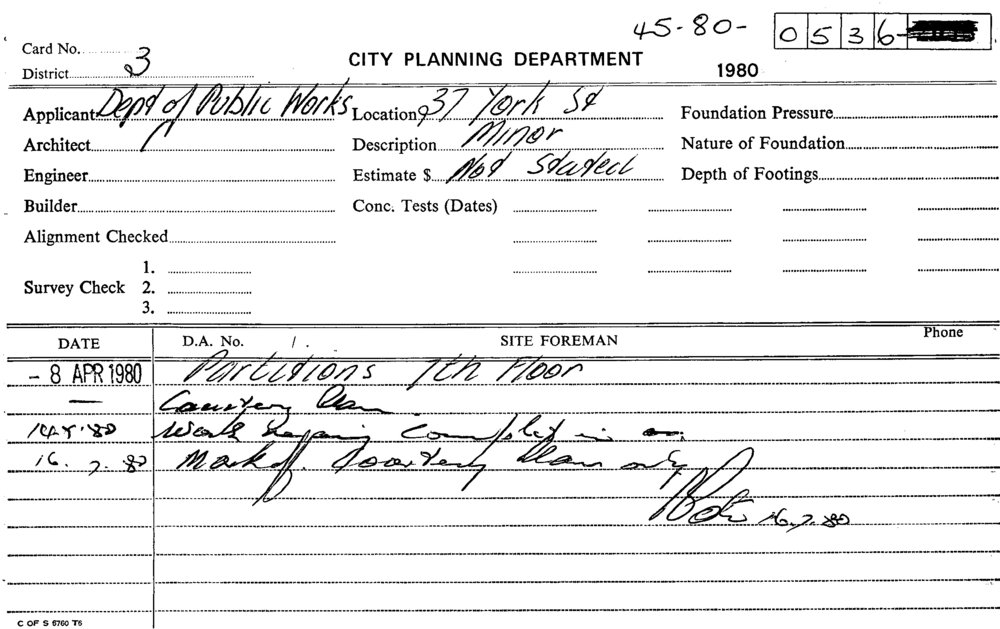 45-80- 0536-
Card No.
CITY PLANNING DEPARTMENT
District 3
1980
Applicant Dept of Public Works Location 37 York St Foundation Pressure
Architect Description Minor Nature of Foundation
Engineer Estimate $ Not Stated Depth of Footings
Builder Conc. Tests (Dates)
Alignment Checked
1.
Survey Check 2.
3.
DATE D.A. No. SITE FOREMAN Phone
- 8 APR 1980 Partitions 7th Floor
Courtesy Plan
Work
16.7.80 Mark off. Courtesy Plan only
16.7.80
C OF S 6760 T6